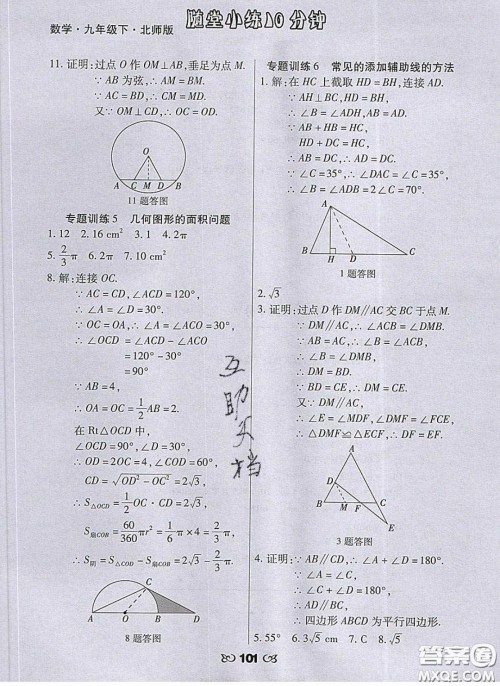 数学·九年级下·北师版
随堂小练10分钟
11.证明:过点O作OM⊥AB,垂足为点M.
∵AB为弦,∴AM=BM.
又∵AC=BD,∴CM=MD.
又∵OM⊥CD,∴OC=OD.
O
A C M D B
11题答图
专题训练5 几何图形的面积问题
1.12 2.16 cm² 3.1 4.2π
5.2/3π 6.2π 7.10 cm²
8.解:连接OC.
∵AC=CD,∠ACD=120°,
∴∠A=∠D=30°.
∵OC=OA,∴∠A=∠ACO=30°.
∴∠OCD=∠ACD-∠ACO
=120°-30°
=90°
∵AB=4,
∴OA=OC=1/2AB=2.
在Rt△OCD中,
∠OCD=90°,∠D=30°,
∴OD=2OC=4.
CD=√(OD²-OC²)=2√3.
∴S△OCD=1/2OC·CD=2√3,
S扇COB=60/360πr²=1/6π×4=2/3π.
∴S阴=S△COD-S扇COB=2√3-2/3π.
C
A O B D
8题答图
专题训练6 常见的添加辅助线的方法
1.解:在HC上截取HD=BH,连接AD.
∵AH⊥BC,HD=BH,
∴∠B=∠ADH,AB=AD.
∵AB+BH=HC,
HD+CD=HC,
∴AB=CD,∴AD=CD.
∵∠C=35°,∴∠DAC=35°.
∴∠B=∠BDA=2∠C=70°.
A
B H D C
1题答图
2.√3
3.证明:过点D作DM∥AC交BC于点M.
∵DM∥AC,∴∠ACB=∠DMB.
∵AB=AC,∴∠B=∠ACB.
∴∠B=∠DMB.
∴BD=DM.
∵BD=CE,∴DM=CE.
又∵DM∥AC,
∴∠E=∠MDF,∠DMF=∠FCE.
∴△DMF≌△ECF,∴DF=EF.
A
D
B M F C
E
3题答图
4.证明:∵AB∥CD,∴∠A+∠D=180°.
∵∠A=∠C,
∴∠C+∠D=180°.
∴AD∥BC.
∴四边形ABCD为平行四边形.
5.55° 6.3√5 cm 7.C 8.√5
互
助
文
档
101
答案圈
MXQE.COM